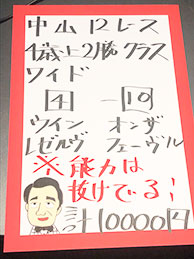 中山12レース
4歳上2勝クラス
ワイド
4 - 10
ウイン オンザ
レゼルヴ フェーヴル
※能力は
抜けてる!
計10000円